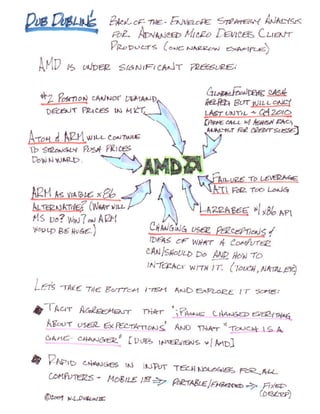 DUB DUBLIN'S
BACK-OF-THE-ENVELOPE STRATEGY ANALYSIS
FOR ADVANCED MICRO DEVICES CLIENT
PRODUCTS (ONE NARROW EXAMPLE)
AMD IS UNDER SIGNIFICANT PRESSURE:
#2 POSITION CANNOT DEMAND
DECENT PRICES IN MKT.
GLOBALFOUNDRIES CASH
HELPED BUT WILL ONLY
LAST UNTIL ~Q4 2010
ANALYST FOR CREDIT SUISSE]
ATOM & ARM WILL CONTINUE
TO STRONGLY PUSH PRICES
DOWNWARD.
AMD
FAILURE TO LEVERAGE
ATI FOR TOO LONG
ARM AS VIABLE X86
ALTERNATIVE? (WHAT WILL
MS DO? WIN7 ON ARM
WOULD BE HUGE.)
LARRABEE W/ X86 API
CHANGING USER PERCEPTIONS &
IDEAS OF WHAT A COMPUTER
CAN/SHOULD DO AND HOW TO
INTERACT WITH IT. (TOUCH, NATAL, ETC)
LET'S TAKE THE BOTTOM ITEM AND EXPLORE IT SOME:
TACIT AGREEMENT THAT "iPHONE CHANGED EVERYTHING
ABOUT USER EXPECTATIONS" AND THAT "TOUCH IS A
GAME CHANGER" [DUB'S INTERVIEWS W/ AMD]
RAPID CHANGES IN INPUT TECHNOLOGIES FOR ALL
COMPUTERS - MOBILE 1ST => PORTABLE/EMBEDDED => FIXED
(DESKTOP)
©2009 W.L. DUBLIN III